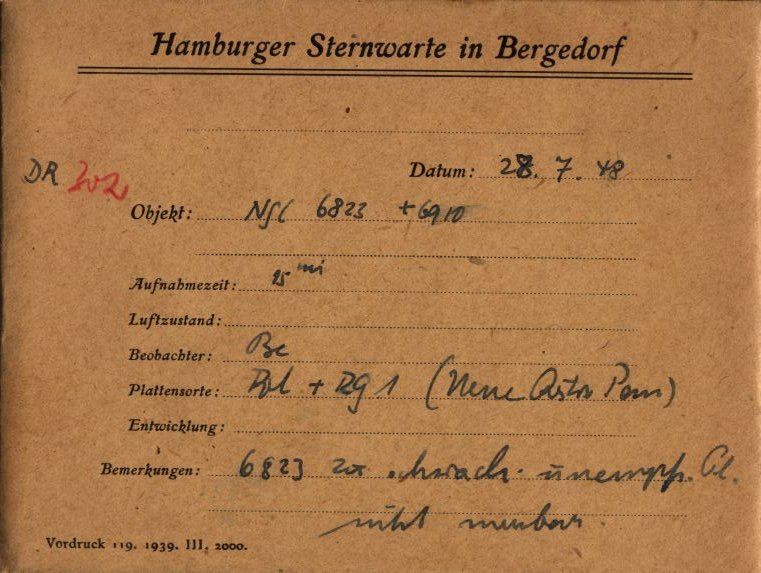 Hamburger Sternwarte in Bergedorf
DR 202
Datum: 28. 7. 48
Objekt: NGC 6823 + 6910
Aufnahmezeit: 25 min
Luftzustand:
Beobachter: Be
Plattensorte: + RG 1 (Neue Astro Pan)
Entwicklung:
Bemerkungen: 6823 zu schwach. unempf.
nicht messbar.
Vordruck 119. 1939. III. 2000.